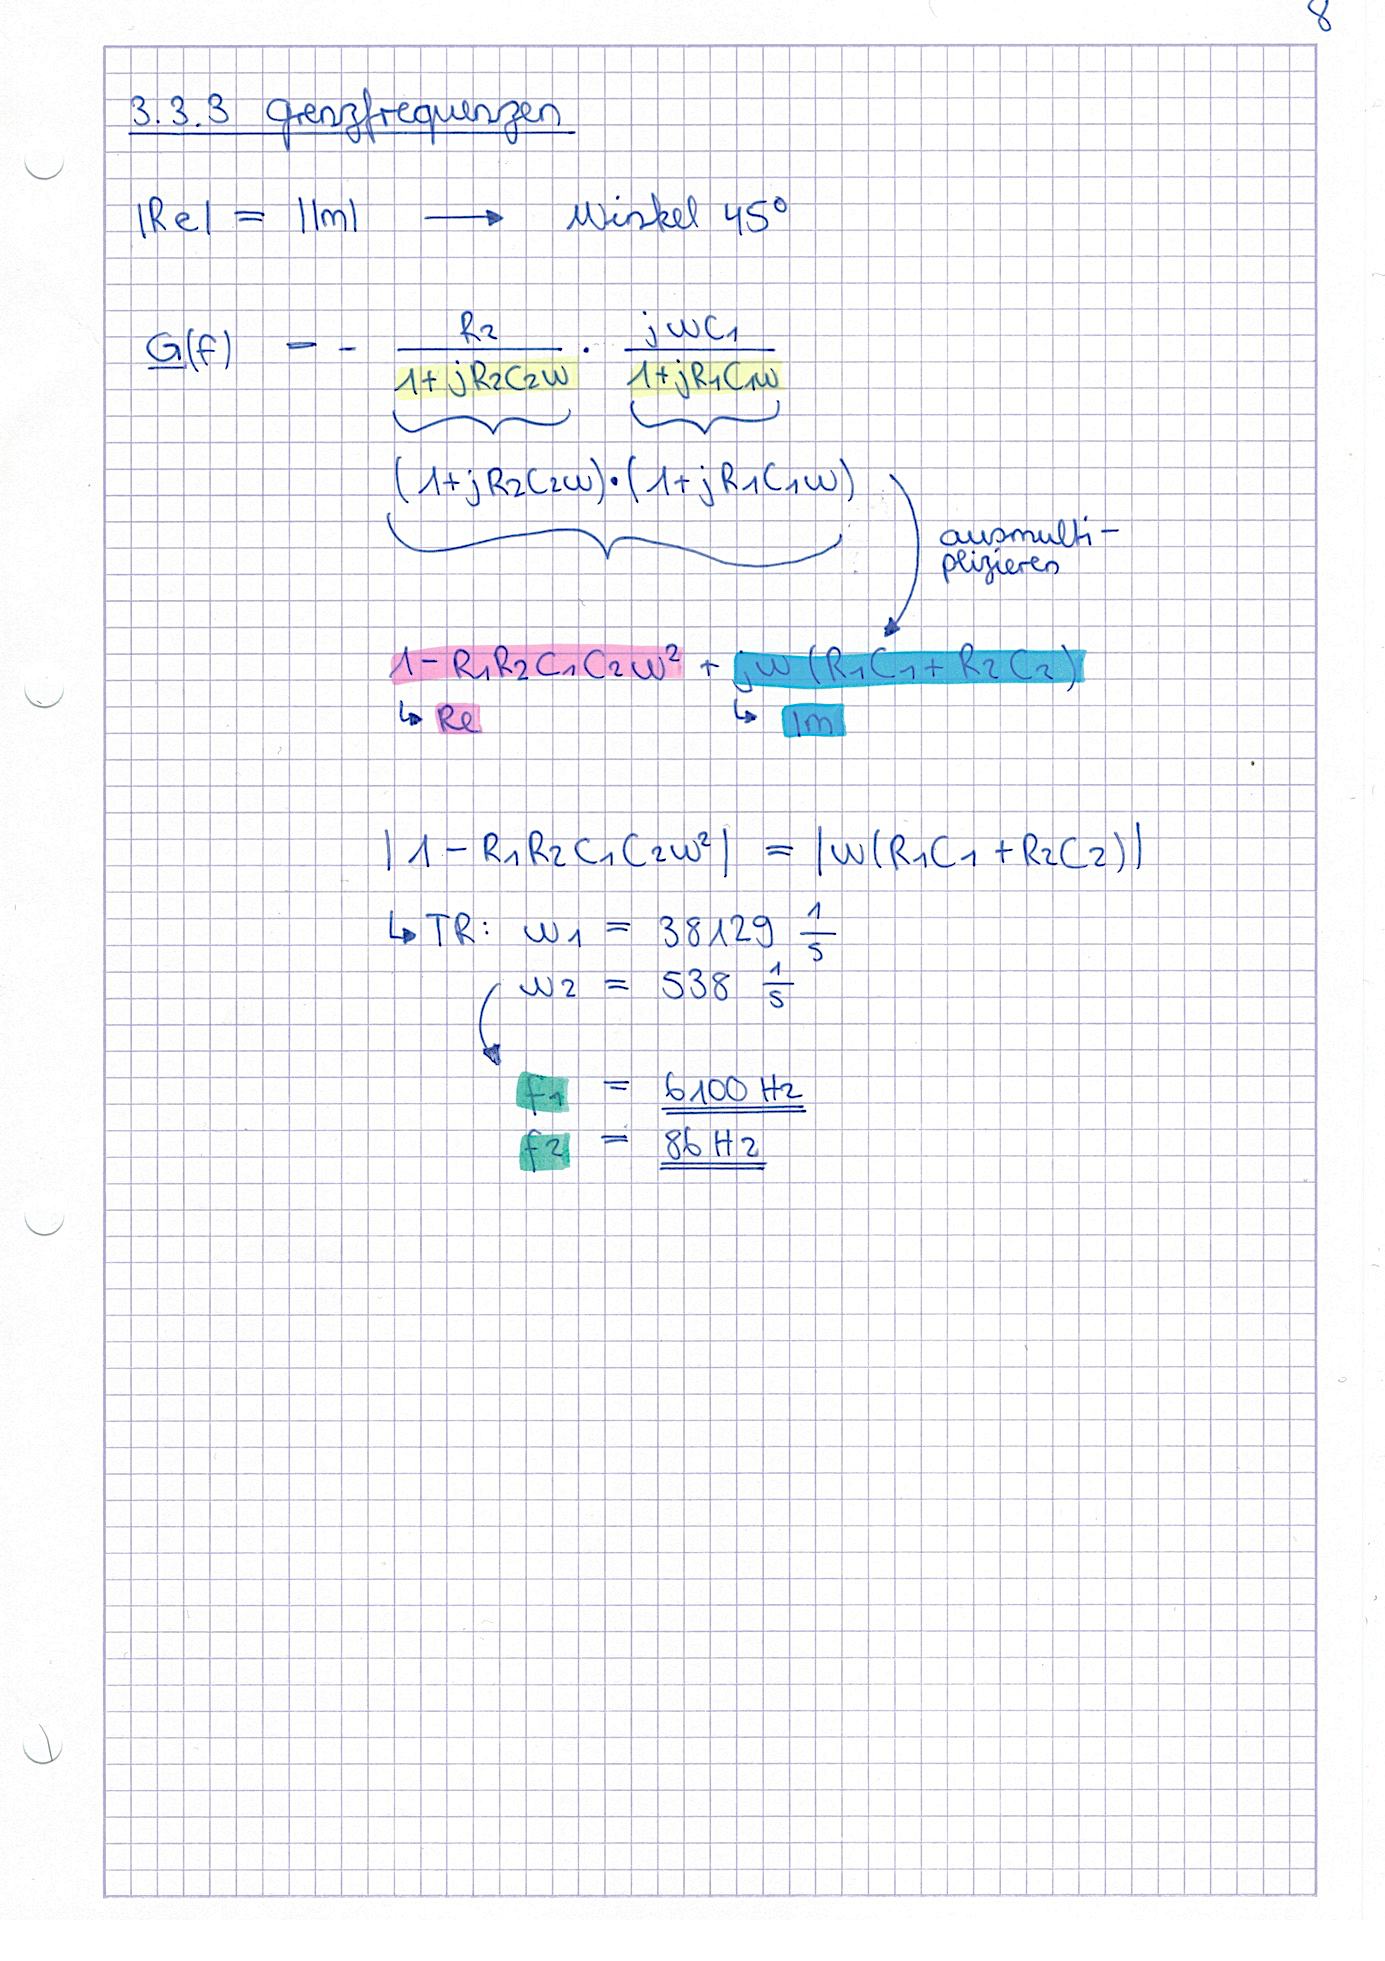 8
3.3.3 Grenzfrequenzen
|Re| = |Im| → Winkel 45°
G(f) = - R2 / (1+jR2C2ω) · jωC1 / (1+jR1C1ω)
(1+jR2C2ω)·(1+jR1C1ω)
ausmulti-
plizieren
1-R1R2C1C2ω² + jω(R1C1+R2C2)
↳ Re ↳ Im
|1-R1R2C1C2ω²| = |ω(R1C1+R2C2)|
↳ TR: ω1 = 38129 1/s
ω2 = 538 1/s
f1 = 6100 Hz
f2 = 86 Hz